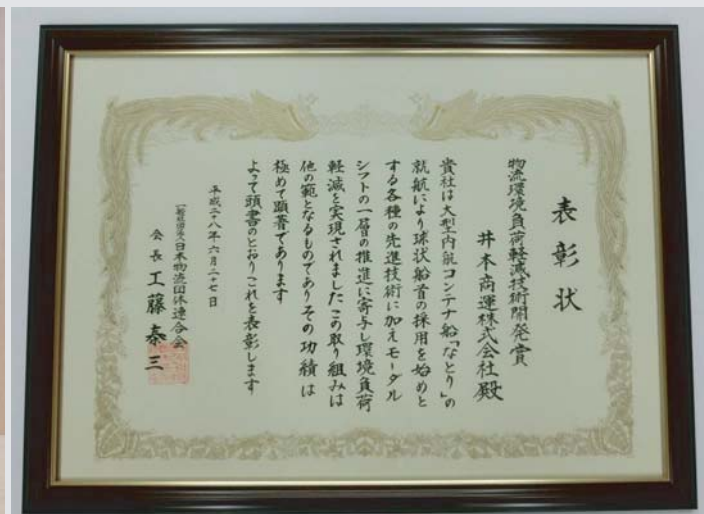 表彰状
物流環境負荷軽減技術開発賞
井本商運株式会社殿
貴社は大型内航コンテナ船「なとり」の
就航により球状船首の採用を始めと
する各種の先進技術に加えモーダル
シフトの一層の推進に寄与し環境負荷
軽減を実現されましたこの取り組みは
他の範となるものでありその功績は
極めて顕著であります
よって頭書のとおりこれを表彰します
平成二十八年六月二十七日
一般社団法人日本物流団体連合会
会長工藤泰三